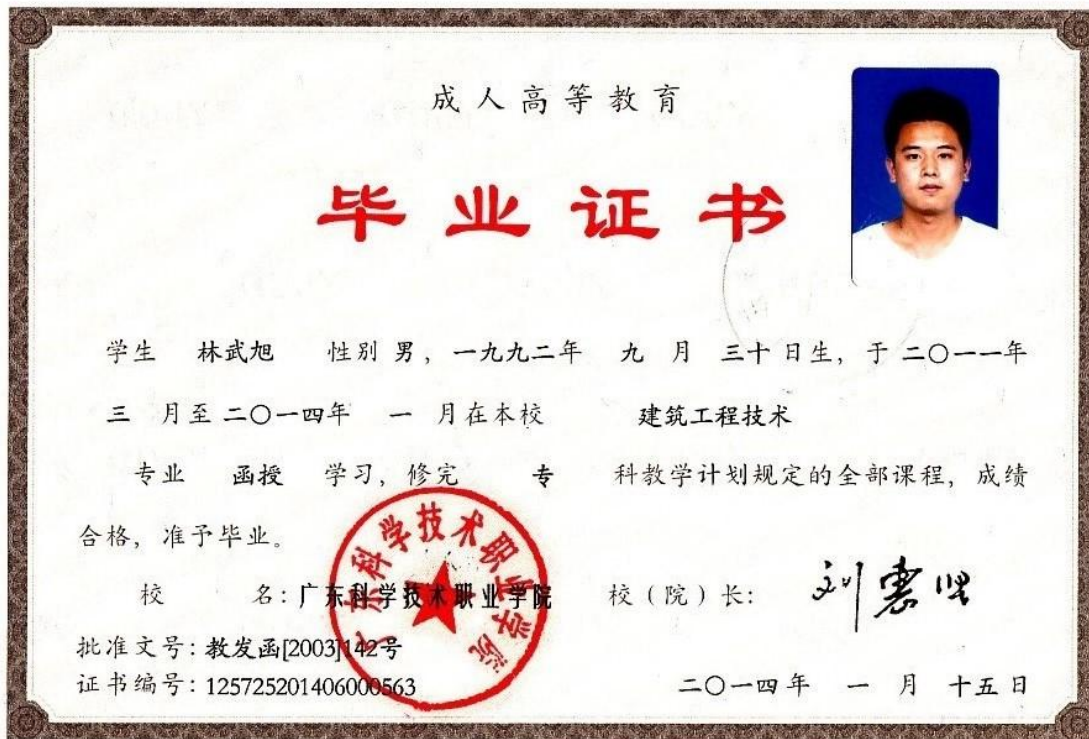 成人高等教育
毕业证书
学生 林武旭 性别 男，一九九二年 九 月 三十 日生，于 二〇一一年
三 月至 二〇一四年 一 月在本校 建筑工程技术
专业 函授 学习，修完 专 科教学计划规定的全部课程，成绩
合格，准予毕业。
校 名：广东科学技术职业学院 校（院）长：
广东科学技术职业学院
批准文号：教发函[2003]142号
证书编号：125725201406000563
二〇一四年 一 月 十五 日